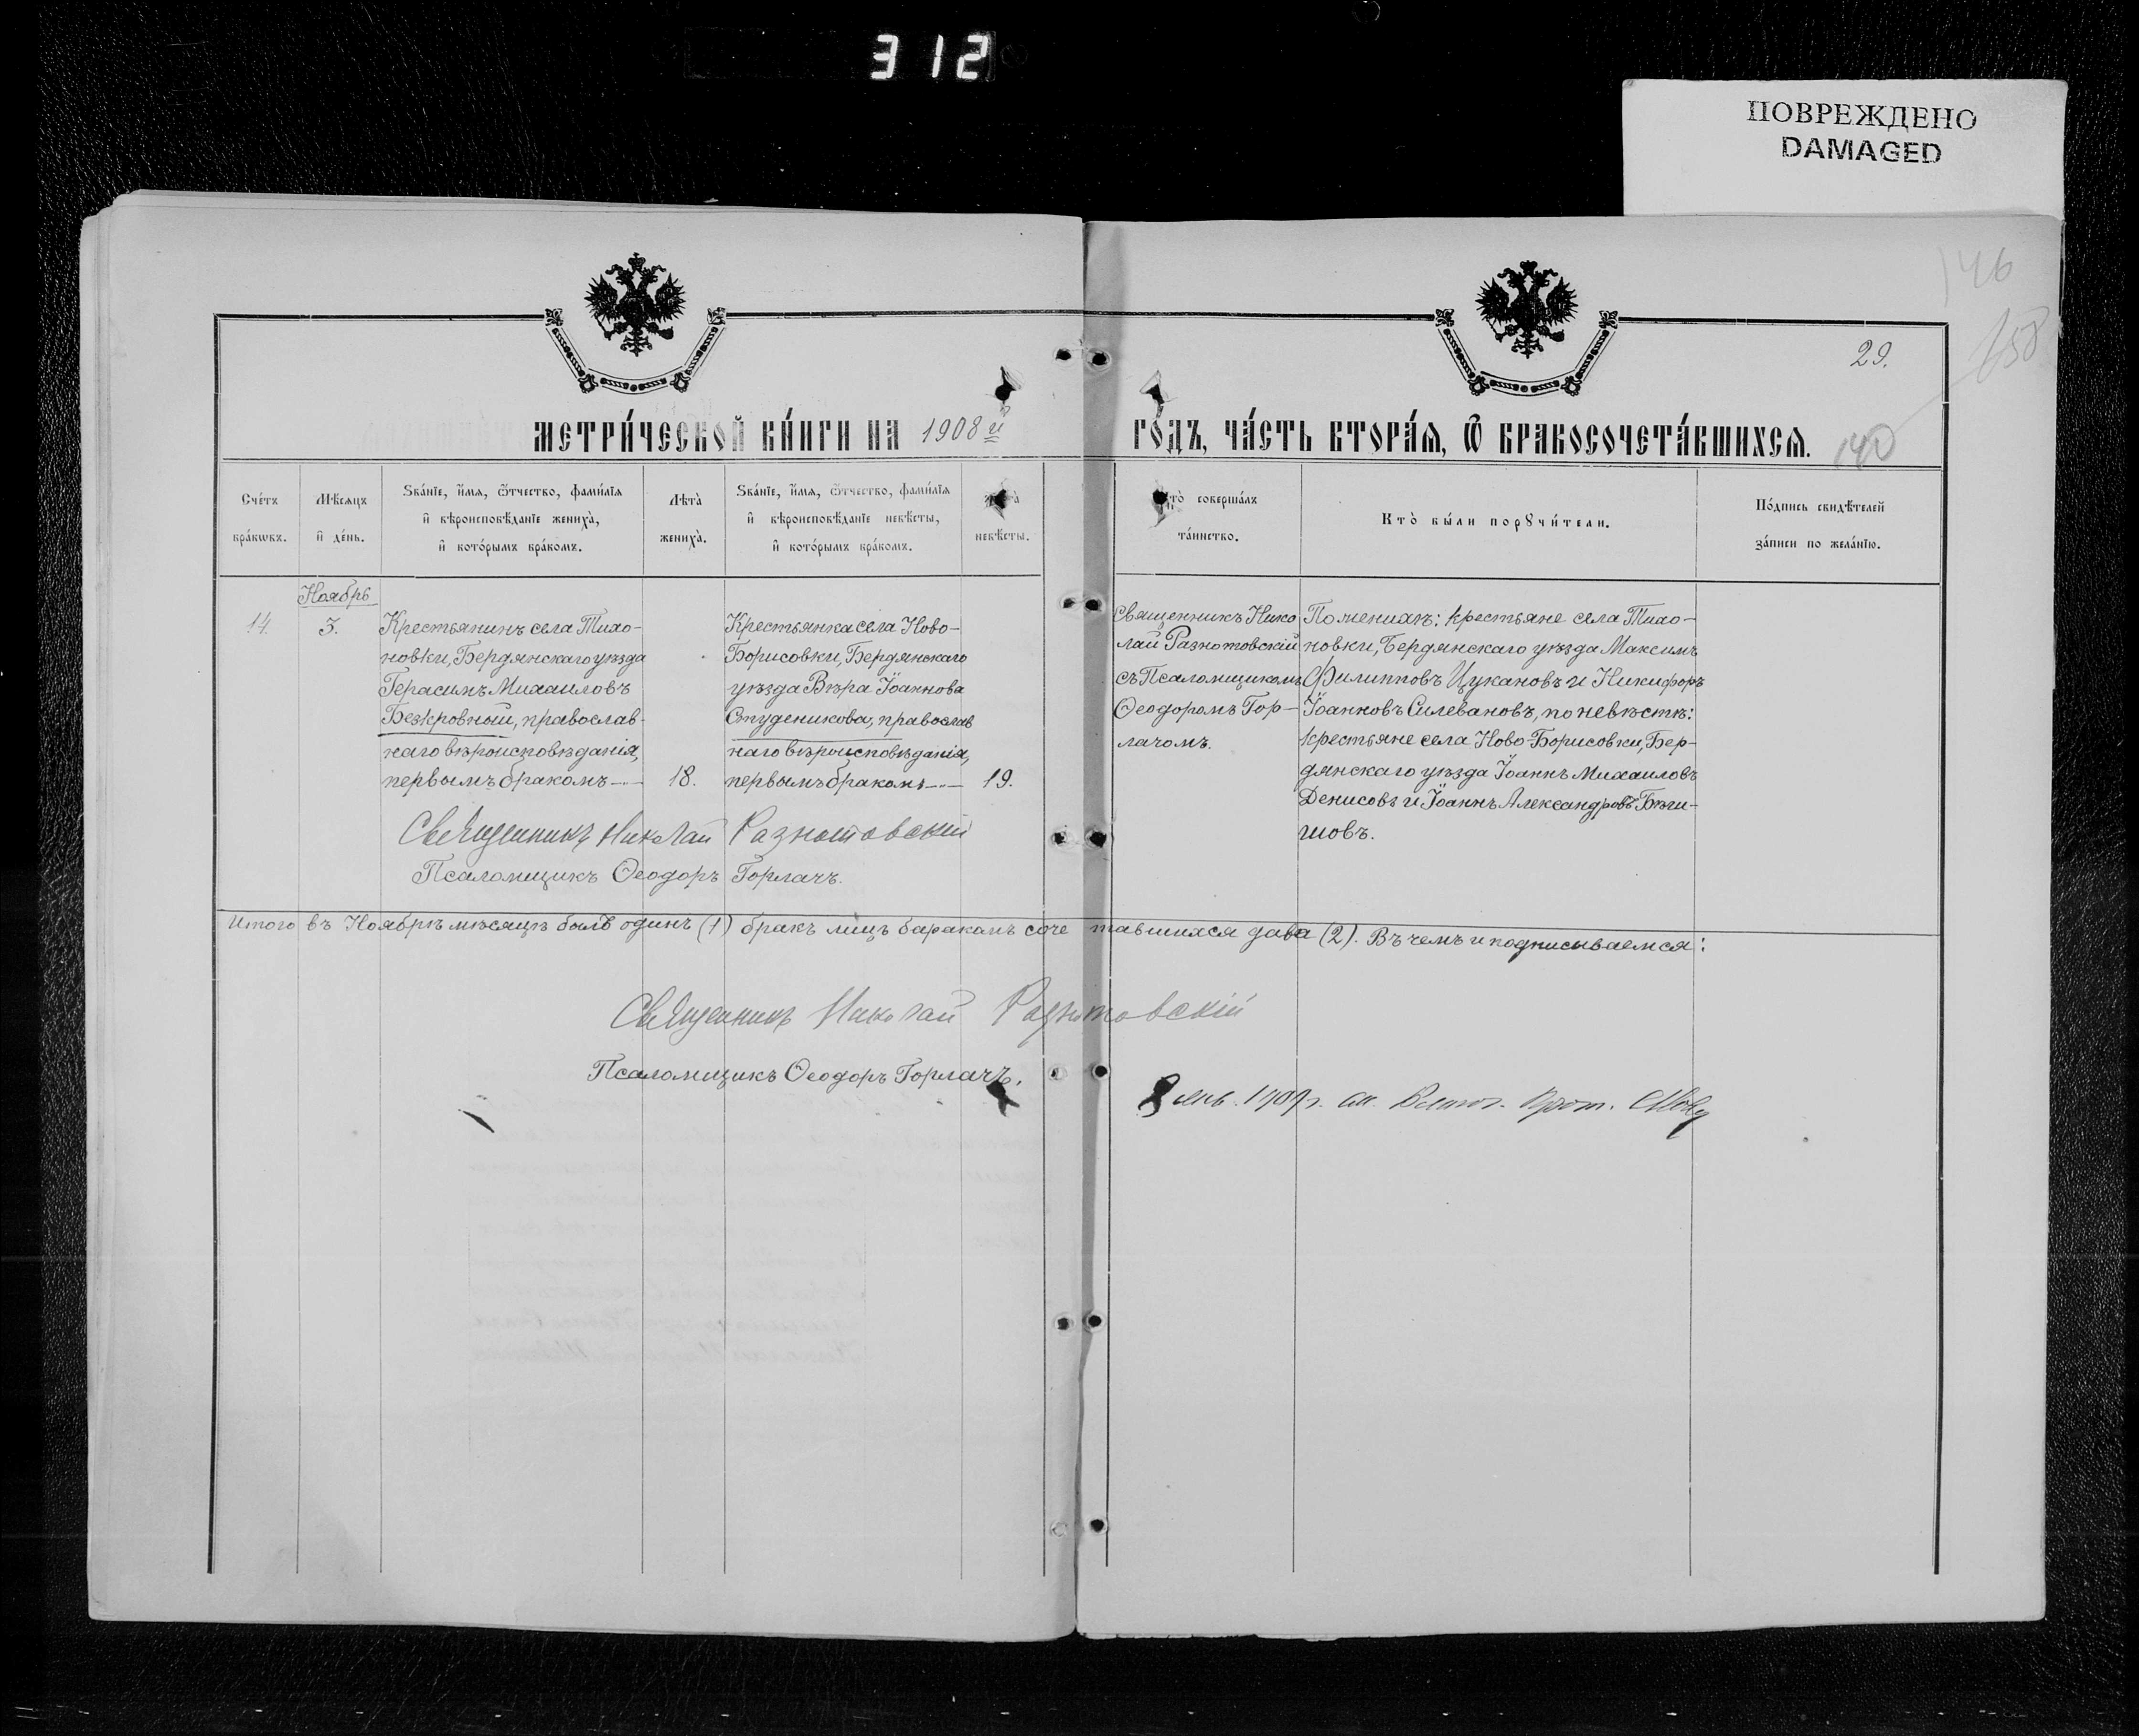 312
ПОВРЕЖДЕНО
DAMAGED
146
158
29.
МЕТРИ́ЧЕСКОЙ КНИ́ГИ НА 1908й ГО́ДЪ, ЧА́СТЬ ВТОРА́Я, Ѿ БРАКОСОЧЕТА́ВШИХСЯ.
140
Сче́тъ
бра́кωвъ.
Мѣсяцъ
и҆ де́нь.
Ѕва́нїе, и҆́мя, ѻ҆́тчество, фами́лїя
и҆ вѣроисповѣ́данїе жениха̀,
и҆ кото́рымъ бра́комъ.
Лѣта̀
жениха̀.
Ѕва́нїе, и҆́мя, ѻ҆́тчество, фами́лїя
и҆ вѣроисповѣ́данїе невѣ́сты,
и҆ кото́рымъ бра́комъ.
невѣ́сты.
соверша́лъ
та́инство.
Кто̀ бы́ли порꙋчи́тели.
По́дпись свидѣ́телей
за́писи по жела́нїю.
Ноябрь
14.
3.
Крестьянинъ села Тихо-
новки, Бердянскаго уѣзда
Герасимъ Михаиловъ
Безкровный, православ-
наго вѣроисповѣданія,
первымъ бракомъ
18.
Крестьянка села Ново-
Борисовки, Бердянскаго
уѣзда Вѣра Іоаннова
Студеникова, православ
наго вѣроисповѣданія,
первымъ бракомъ
19.
Священникъ Нико
лай Разнотовскій
съ Псаломщикомъ
Ѳеодоромъ Гор-
лачомъ.
По женихѣ: крестьяне села Тихо-
новки, Бердянскаго уѣзда Максимъ
Филипповъ Цукановъ и Никифоръ
Іоанновъ Силевановъ, по невѣстѣ:
крестьяне села Ново-Борисовки, Бер-
дянскаго уѣзда Іоаннъ Михаиловъ
Денисовъ и Іоаннъ Александровъ
шовъ.
Священникъ Николай Разнотовскій
Псаломщикъ Ѳеодоръ Горлачъ.
Итого въ Ноябрѣ мѣсяцѣ былъ одинъ (1) бракъ лицъ баракомъ соче тавшихся дава (2). Въ чемъ и подписываемся:
Священникъ Николай Разнотовскій
Псаломщикъ Ѳеодоръ Горлачъ.
янв. 1909 г.